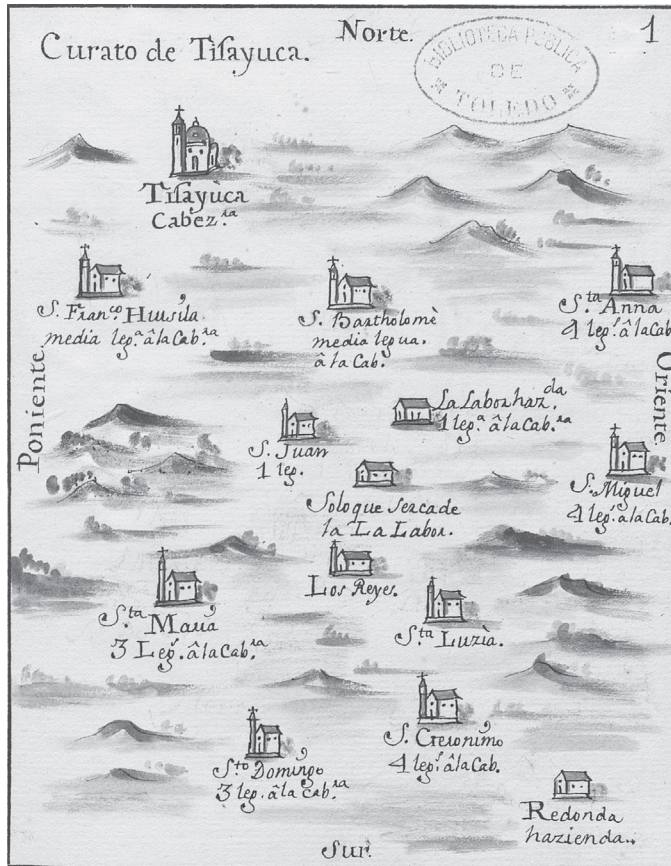 Norte.
1
Curato de Tisayuca.
BIBLIOTECA PUBLICA
DE
TOLEDO
Tisayùca
Cabez.ra
S. Fran.co Huisila
media leg.a â la Cab.ra
S. Bartholomè
media legua.
â la Cab.
S.ta Anna
4 leg.s â la Cab.
Poniente
Oriente
La Labor haz.da
1 leg.a â la Cab.ra
S. Juan
1 leg.
S. Miguel
4 leg.s â la Cab.
Soloque sercade
la La Labor.
Los Reyes.
S.ta Maria
3 Leg.s â la Cab.ra
S.ta Luzìa.
S. Geronimo
4 leg.s â la Cab.
S.to Domingo
3 leg.s â la Cab.ra
Redonda
hazienda.
Sur.